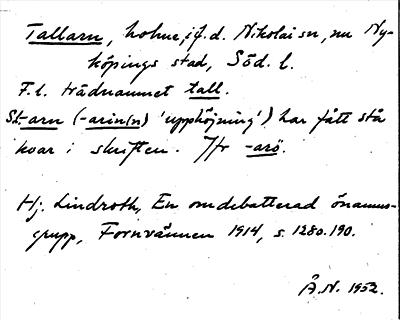 Tallarn, holme, i f.d. Nikolai sn, nu Ny-
köpings stad, Söd. l.
F.l. trädnamnet tall.
S.l. -arn (-arin(n) 'upphöjning') har fått stå
kvar i skriften. Jfr -arö.
Hj. Lindroth, En omdebatterad önamns-
grupp, Fornvännen 1914, s. 128 o. 190.
Å.N. 1952.